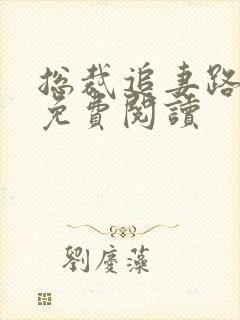 总裁追妻路
免費閱讀
劉慶藻